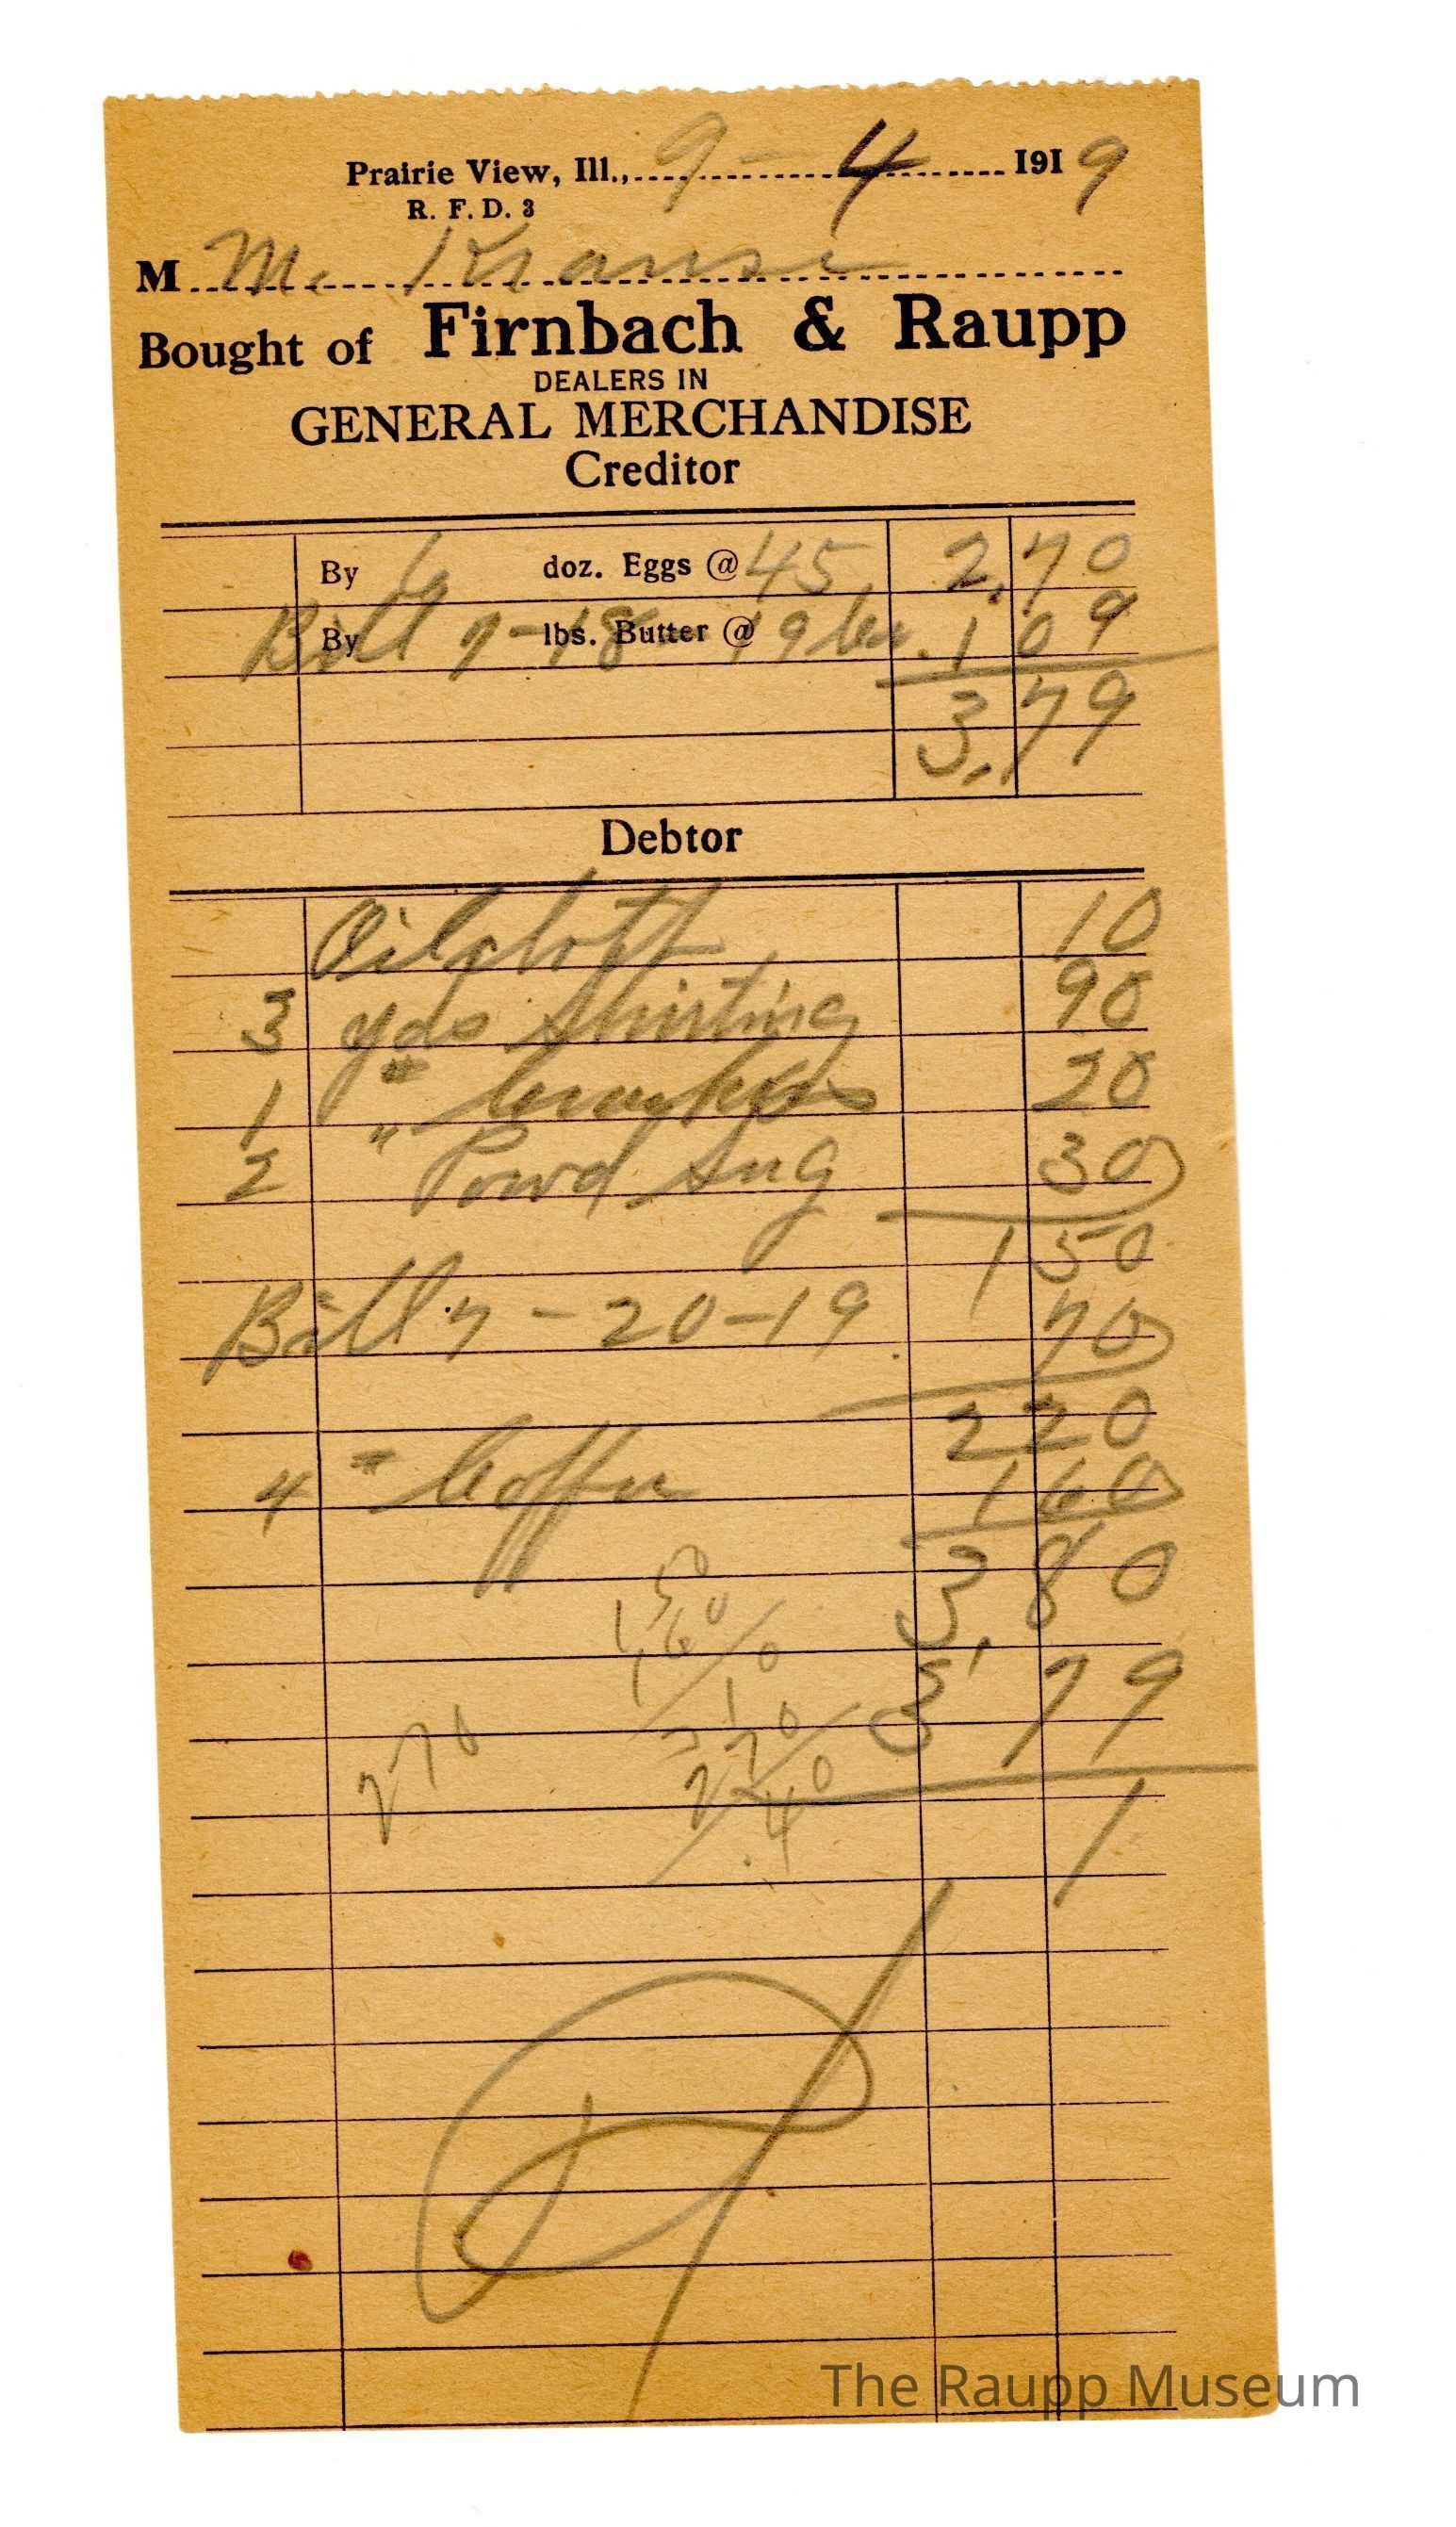 Prairie View, Ill., 9-4 1919
R. F. D. 3
M M. Krause
Bought of Firnbach & Raupp
DEALERS IN
GENERAL MERCHANDISE
Creditor
By 6 doz. Eggs @ 45 2.70
By lbs. Butter @
Bill 7-18-19 1 09
3.79
Debtor
Oilcloth 10
3 yds Shirting 90
1 " Crackers 20
2 " Powd Sug 30
1 50
Bill 7-20-19 70
2 20
4 " Coffee 1 60
3,80
3 79
1
270
The Raupp Museum